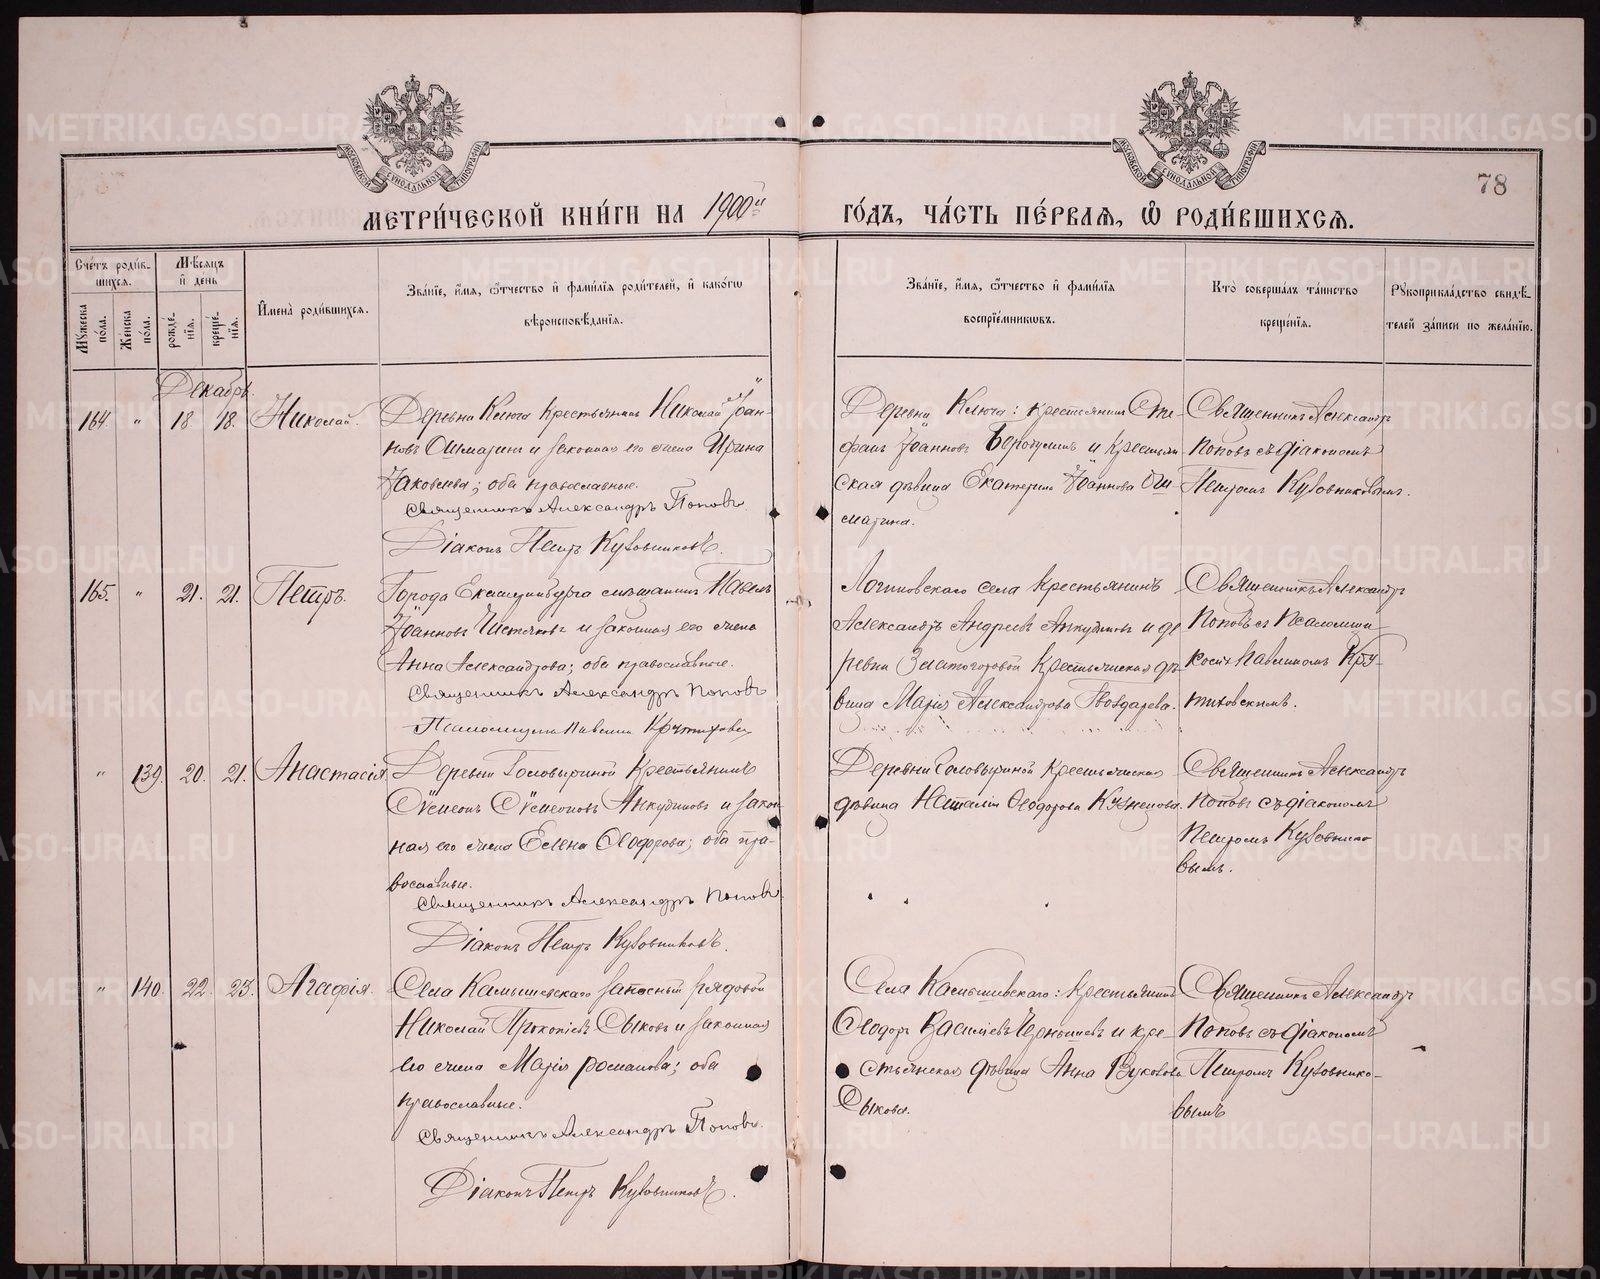 МЕТРИ́ЧЕСКОЙ КНИ́ГИ НА 1900й ГО́ДЪ, ЧА́СТЬ ПЕ́РВАЯ, Ѿ РОДИ́ВШИХСЯ.
78
Сче́тъ роди́в-
шихся.
Мѣ́сяцъ
и҆ де́нь
Му́жеска
по́ла.
Же́нска
по́ла.
рожде́-
нїя.
креще́-
нїя.
И҆мена̀ роди́вшихся.
Зва́нїе, и҆́мя, ѻ҆́тчество и҆ фами́лїя роди́телей, и҆ како́гѡ
вѣроисповѣ́данїя.
Зва́нїе, и҆́мя, ѻ҆́тчество и҆ фами́лїя
воспрїе́мниковъ.
Кто̀ соверша́лъ та́инство
креще́нїя.
Рукоприкла́дство свидѣ́-
телей за́писи по жела́нїю.
Декабрь.
164. " 18 18. Николай.
Деревни Ключа крестьянинъ Николай Іоан-
новъ Ошмаринъ и законная его жена Ирина
Іаковлева; оба православные.
Священникъ Александръ Поповъ
Діаконъ Петръ Кузовниковъ.
Деревни Ключа: крестьянинъ Сте-
фанъ Іоанновъ и крестьян-
ская дѣвица Екатерина Іоаннова Ош-
марина.
Священникъ Александръ
Поповъ съ діакономъ
Петромъ Кузовниковымъ.
165. " 21. 21. Петръ.
Города Екатеринбурга мѣщанинъ Павелъ
Іоанновъ Чистяковъ и законная его жена
Анна Александрова; оба православные.
Священникъ Александръ Поповъ
Псаломщикъ Павлинъ Крутиховскій
Логиновскаго села крестьянинъ
Александръ Андреевъ Анкудиновъ и де
ревни Златогоровой крестьянская дѣ-
вица Марія Александрова Гвоздарева.
Священникъ Александръ
Поповъ съ Псаломщи
комъ Павлиномъ Кру-
тиховскимъ.
" 139. 20. 21. Анастасія
Деревни Головыриной Крестьянинъ
Сѵмеонъ Сѵмеоновъ Анкудиновъ и закон
ная его жена Елена Ѳеодорова; оба пра-
вославные.
Священникъ Александръ Поповъ
Діаконъ Петръ Кузовниковъ.
Деревни Головыриной крестьянская
дѣвица Наталія Ѳеодорова Кузнецова.
Священникъ Александръ
Поповъ съ діакономъ
Петромъ Кузовнико
вымъ.
" 140. 22. 23. Агафія.
Села Камышевскаго запасный рядовой
Николай Прокопіевъ Сыковъ и законная
его жена Марія Романова; оба
православные.
Священникъ Александръ Поповъ.
Діаконъ Петръ Кузовниковъ.
Села Камышевскаго: крестьянинъ
Ѳеодоръ Василіевъ Чернышевъ и кре-
стьянская дѣвица Анна Вуколова
Сыкова.
Священникъ Александръ
Поповъ съ діакономъ
Петромъ Кузовнико-
вымъ
METRIKI.GASO-URAL.RU